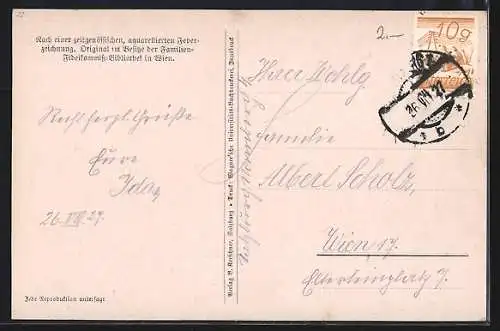 Nach einer zeitgenössischen, aquarellierten Feder-
zeichnung. Original im Besitze der Familien-
Fideikommiß-Bibliothek in Wien.
Recht herzl. Grüße
Eure
Ida
26. VIII. 27.
Jede Reproduktion untersagt
Verlag B. Kerschner, Salzburg • Druck: Wagner'sche Universitäts-Buchdruckerei, Innsbruck
2-
10g
26. VIII. 27
* b *
Familie
Albert Scholz,
Wien, 17.